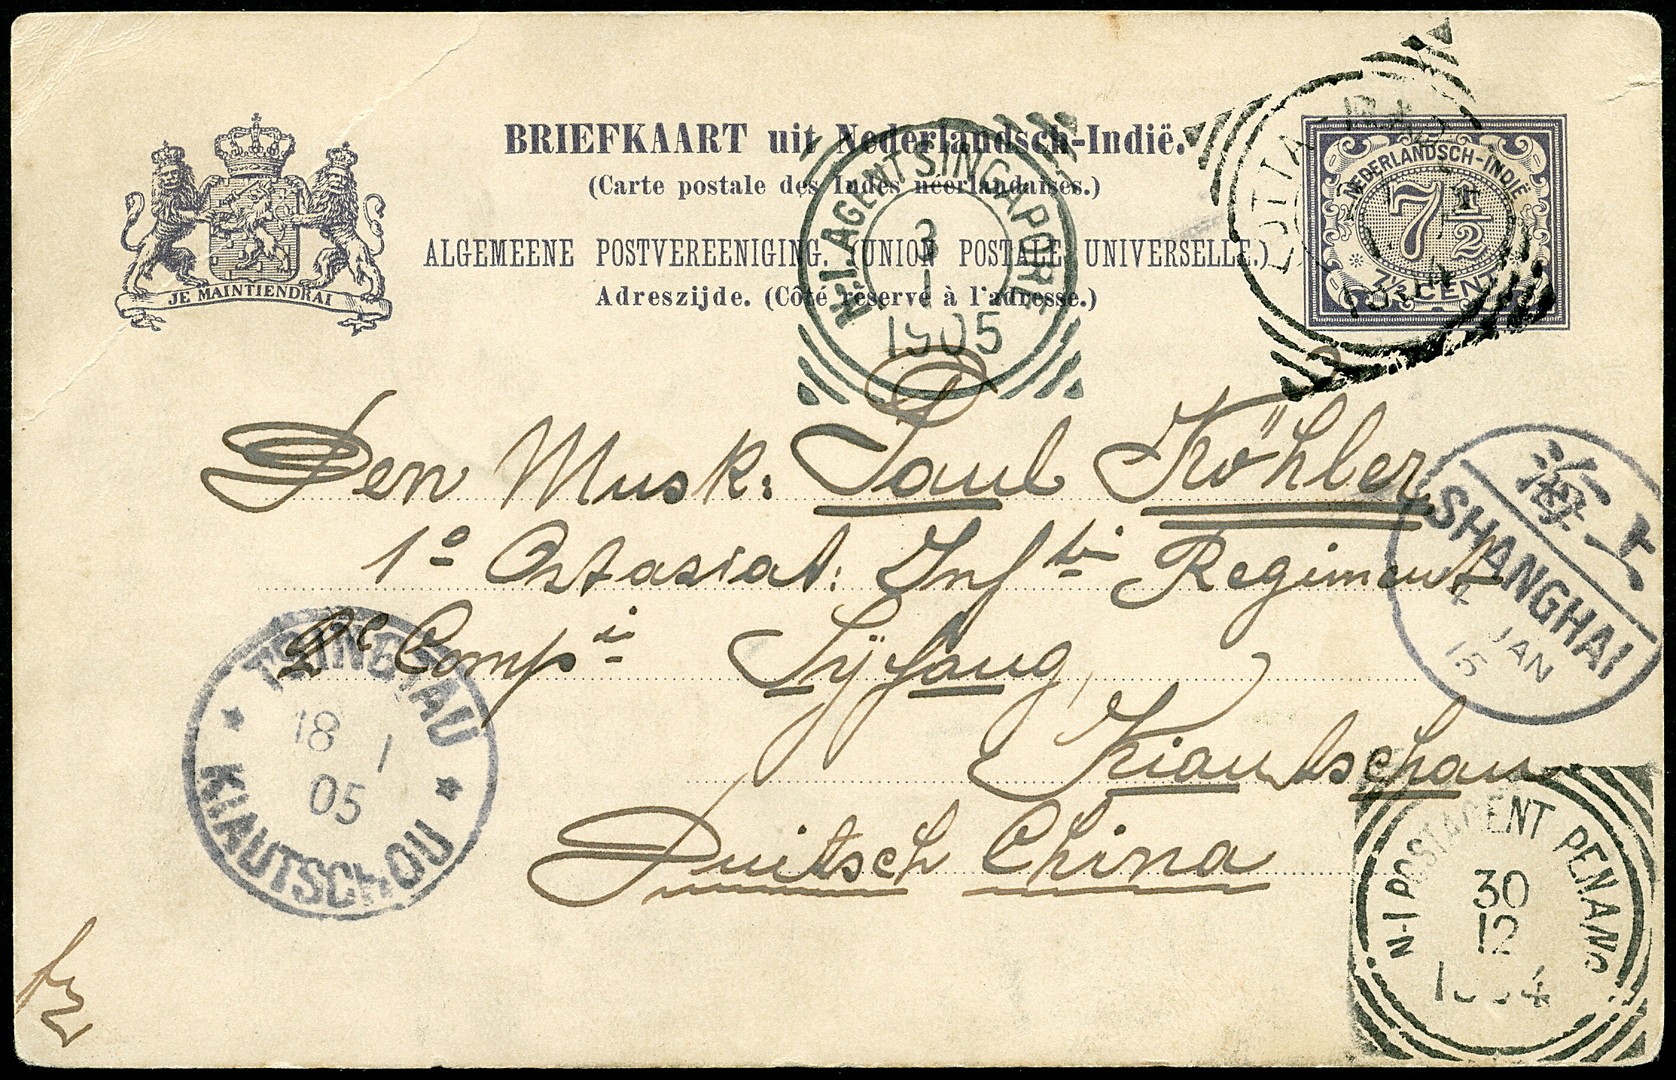 BRIEFKAART uit Nederlandsch-Indië.
(Carte postale des Indes néerlandaises.)
ALGEMEENE POSTVEREENIGING. (UNION POSTALE UNIVERSELLE.)
Adreszijde. (Côté réservé à l'adresse.)
JE MAINTIENDRAI
NEDERLANDSCH-INDIË
7 1/2
7½ CENT
N.I. AGENT SINGAPORE
3
1
1905
Den Musk: Paul Köhler
1e Ostasiat: Inf ti Regiment
Comp i Syfang,
Kiautschau
Duitsch China
上海
SHANGHAI
JAN
15
TSINGTAU
18 1
05
KIAUTSCHOU
N-I POSTAGENT PENANG
30
12
1904